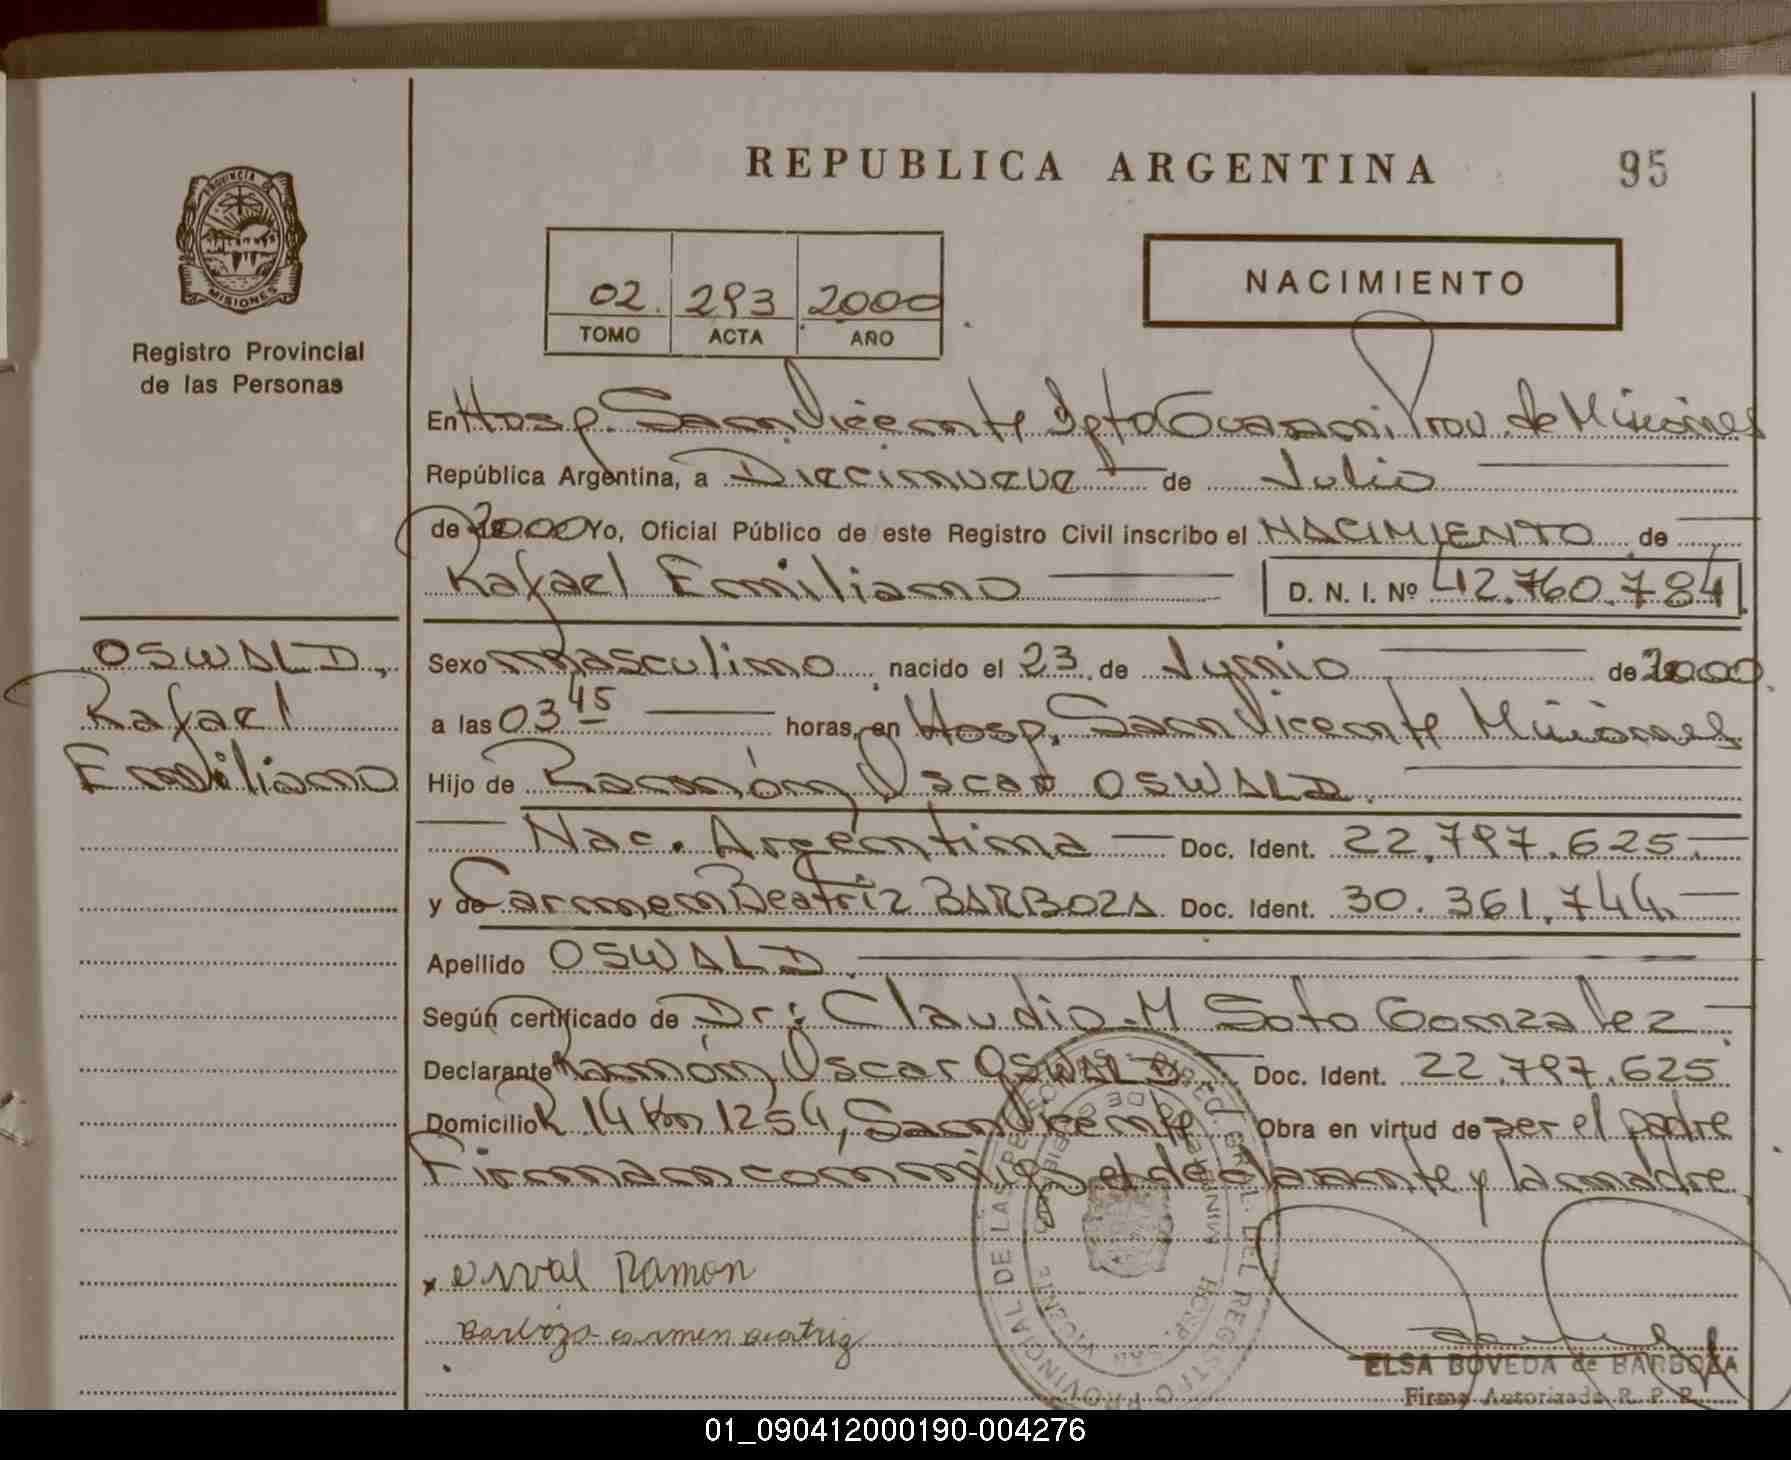 REPUBLICA ARGENTINA
95
PROVINCIA DE
MISIONES
Registro Provincial
de las Personas
02. 293 2000
TOMO ACTA AÑO
NACIMIENTO
En Hosp. San Vicente Dpto Guarani Prov. de Misiones
República Argentina, a Diecinueve de Julio
de 2000 Yo, Oficial Público de este Registro Civil inscribo el NACIMIENTO de
Rafael Emiliano D. N. I. Nº 42.760.784
OSWALD,
Rafael
Emiliano
Sexo masculino nacido el 23 de Junio de 2000
a las 03 45 horas, en Hosp. San Vicente Misiones
Hijo de Ramón Oscar OSWALD.
Nac. Argentina Doc. Ident. 22.797.625.
y de Carmen Beatriz BARBOZA Doc. Ident. 30.361.744.
Apellido OSWALD.
Según certificado de Dr: Claudio M Soto Gonzalez
Declarante Ramón Oscar OSWALD Doc. Ident. 22.797.625
Domicilio R 14 Km 1254, San Vicente Obra en virtud de ser el padre
Firman conmigo el declarante y la madre
x osval Ramon
Barboza carmen Beatriz
ELSA BOVEDA de BARBOZA
Firma Autorizada R. P. P.
01_090412000190-004276